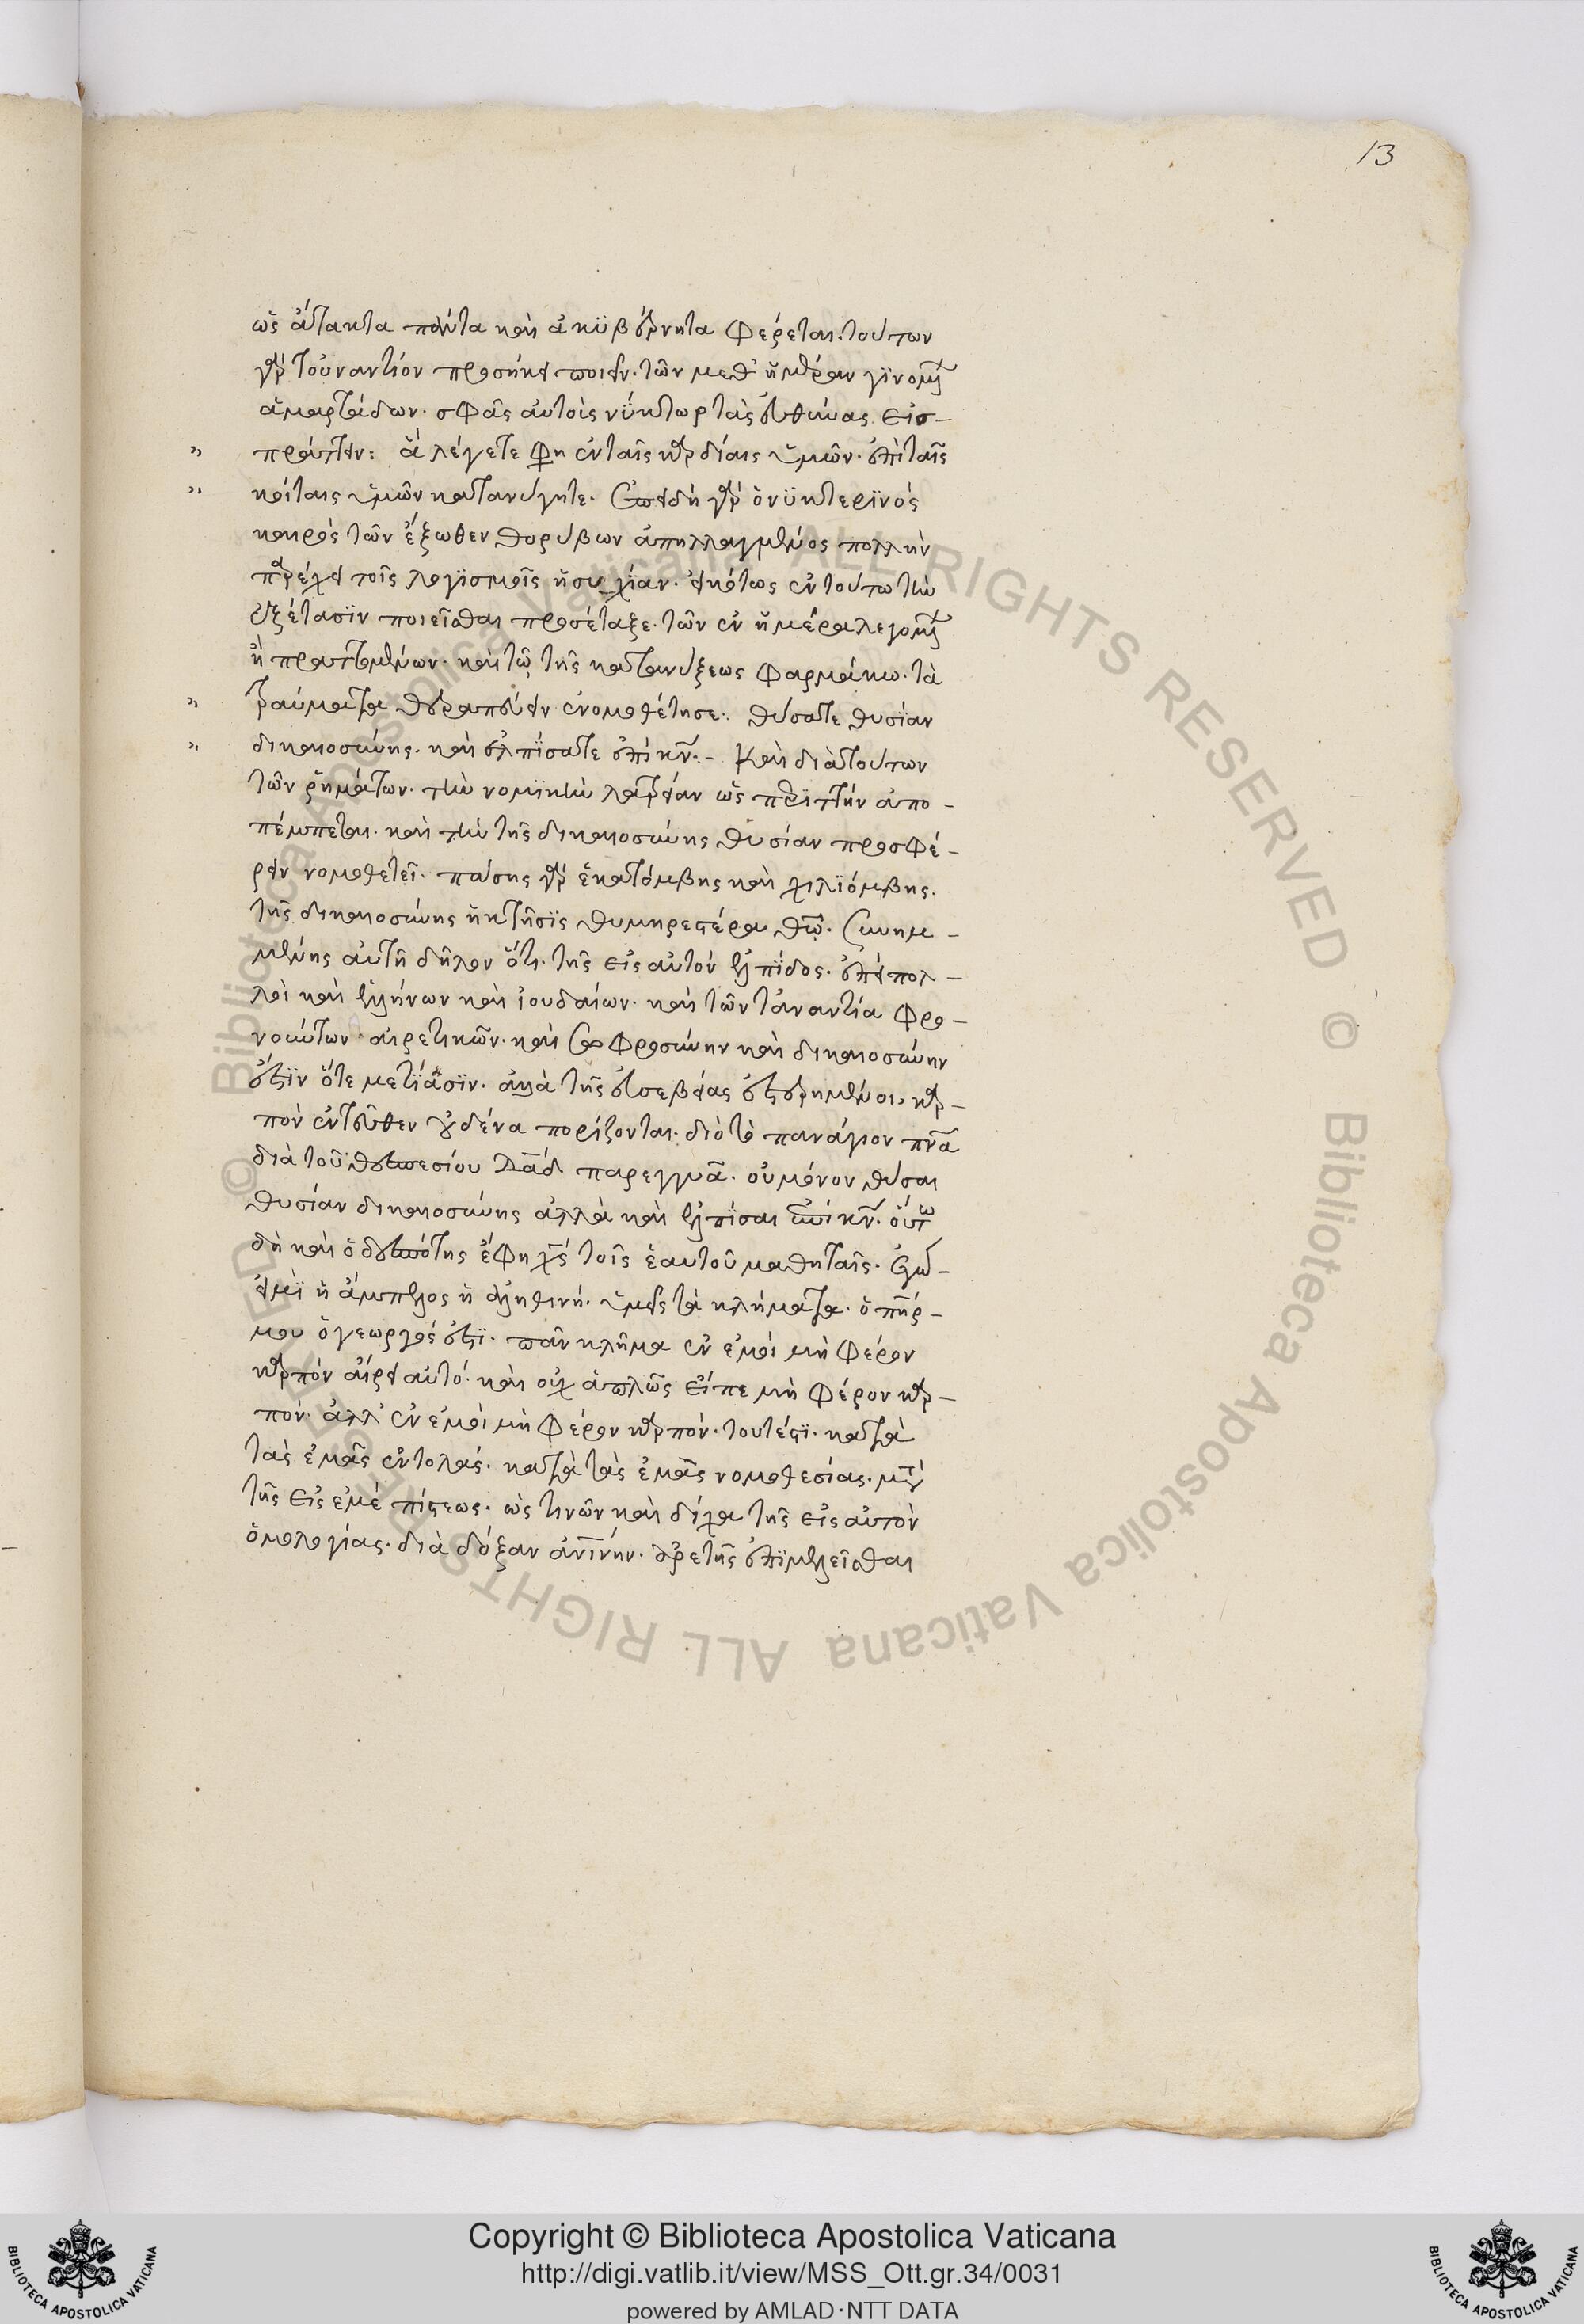 13
ὡς ἄτακτα πάντα καὶ ἀκϋβέρνητα φέρεται. τούτων
γὰρ τοὐναντίον προσήκει ποιεῖν. τῶν μεθ' ἡμέραν γϊνομένων
ἁμαρτάδων. σφᾶς αὐτοὺς νύκτωρ τὰς εὐθύνας εἰσ-
„ πράττειν: ἃ λέγετε φη ἐν ταῖς καρδίαις ὑμῶν. ἐπὶ ταῖς
„ κοίταις ὑμῶν κατανύγητε. Ἐπειδὴ γὰρ ὁ νϋκτερϊνὸς
καιρὸς τῶν ἔξωθεν θορύβων ἀπηλλαγμένος πολλὴν
παρέχει τοῖς λογϊσμοῖς ἡσυχίαν. εἰκότως ἐν τούτω τὴν
ἐξέτασϊν ποιεῖσθαι προσέταξε. τῶν ἐν ἡμέρα λεγομένων
ἢ πραττομένων. καὶ τῷ τῆς κατανύξεως φαρμάκω. τὰ
„ τραύματα θεραπεύειν ἐνομοθέτησε. θύσατε θυσίαν
„ δικαιοσύνης. καὶ ἐλπίσατε ἐπὶ κν̄.- Καὶ διὰ τούτων
τῶν ῥημάτων. τὴν νομϊκὴν λατρείαν ὡς περϊττὴν ἀπο-
πέμπεται. καὶ τὴν τῆς δικαιοσύνης θυσίαν προσφέ-
ρειν νομοθετεῖ. πάσης γὰρ ἑκατόμβης καὶ χιλϊόμβης.
τῆς δικαιοσύνης ἡ κτῆσϊς θυμηρεστέρα θῶ. Συνημ-
μένης αὐτῆ δῆλον ὅτι. τῆς εἰς αὐτὸν ἐλπίδος. ἐπεὶ πολ-
λοὶ καὶ ἑλλήνων καὶ ἰουδαίων. καὶ τῶν τἀναντία φρο-
νούντων αἱρετικῶν. καὶ σωφροσύνην καὶ δικαιοσύνην
ἔστϊν ὅτε μετίασϊν. ἀλλὰ τῆς εὐσεβείας ἐστερημένοι, καρ-
πὸν ἐντεῦθεν οὐδένα πορίζονται. διὸ τὸ πανάγιον πνᾶ
διὰ τοῦ θεσπεσίου Δᾱδ παρεγγυᾶ. οὐ μόνον θύσαι
θυσίαν δικαιοσύνης ἀλλὰ καὶ ἐλπίσαι ἐπὶ κν̄. οὕτω
δὴ καὶ ὁ δεσπότης ἔφη χς̄ τοῖς ἑαυτοῦ μαθηταῖς. Ἐγώ-
εἰμϊ ἡ ἄμπελος ἡ ἀληθινή. ὑμεῖς τὰ κλήματα. ὁ πηρ-
μου ὁ γεωργός ἐστϊ. πᾶν κλῆμα ἐν ἐμοὶ μὴ φέρον
καρπὸν αἴρει αὐτό. καὶ οὐχ ἁπλῶς εἶπε μὴ φέρον καρ-
πόν. ἀλλ' ἐν ἐμοὶ μὴ φέρον καρπόν. τουτέστϊ. κατὰ
τὰς ἐμὰς ἐντολάς. κατὰ τὰς ἐμὰς νομοθεσίας. μετὰ
τῆς εἰς ἐμὲ πίστεως. ὡς τινῶν καὶ δίχα τῆς εἰς αὐτὸν
ὁμολογίας. διὰ δόξαν ἀνίνην. ἀρετῆς ἐπϊμελεῖσθαι
Copyright © Biblioteca Apostolica Vaticana
http://digi.vatlib.it/view/MSS_Ott.gr.34/0031
powered by AMLAD·NTT DATA
BIBLIOTECA APOSTOLICA VATICANA
BIBLIOTECA APOSTOLICA VATICANA
© Biblioteca Apostolica Vaticana ALL RIGHTS RESERVED © Biblioteca Apostolica Vaticana ALL RIGHTS RESERVED